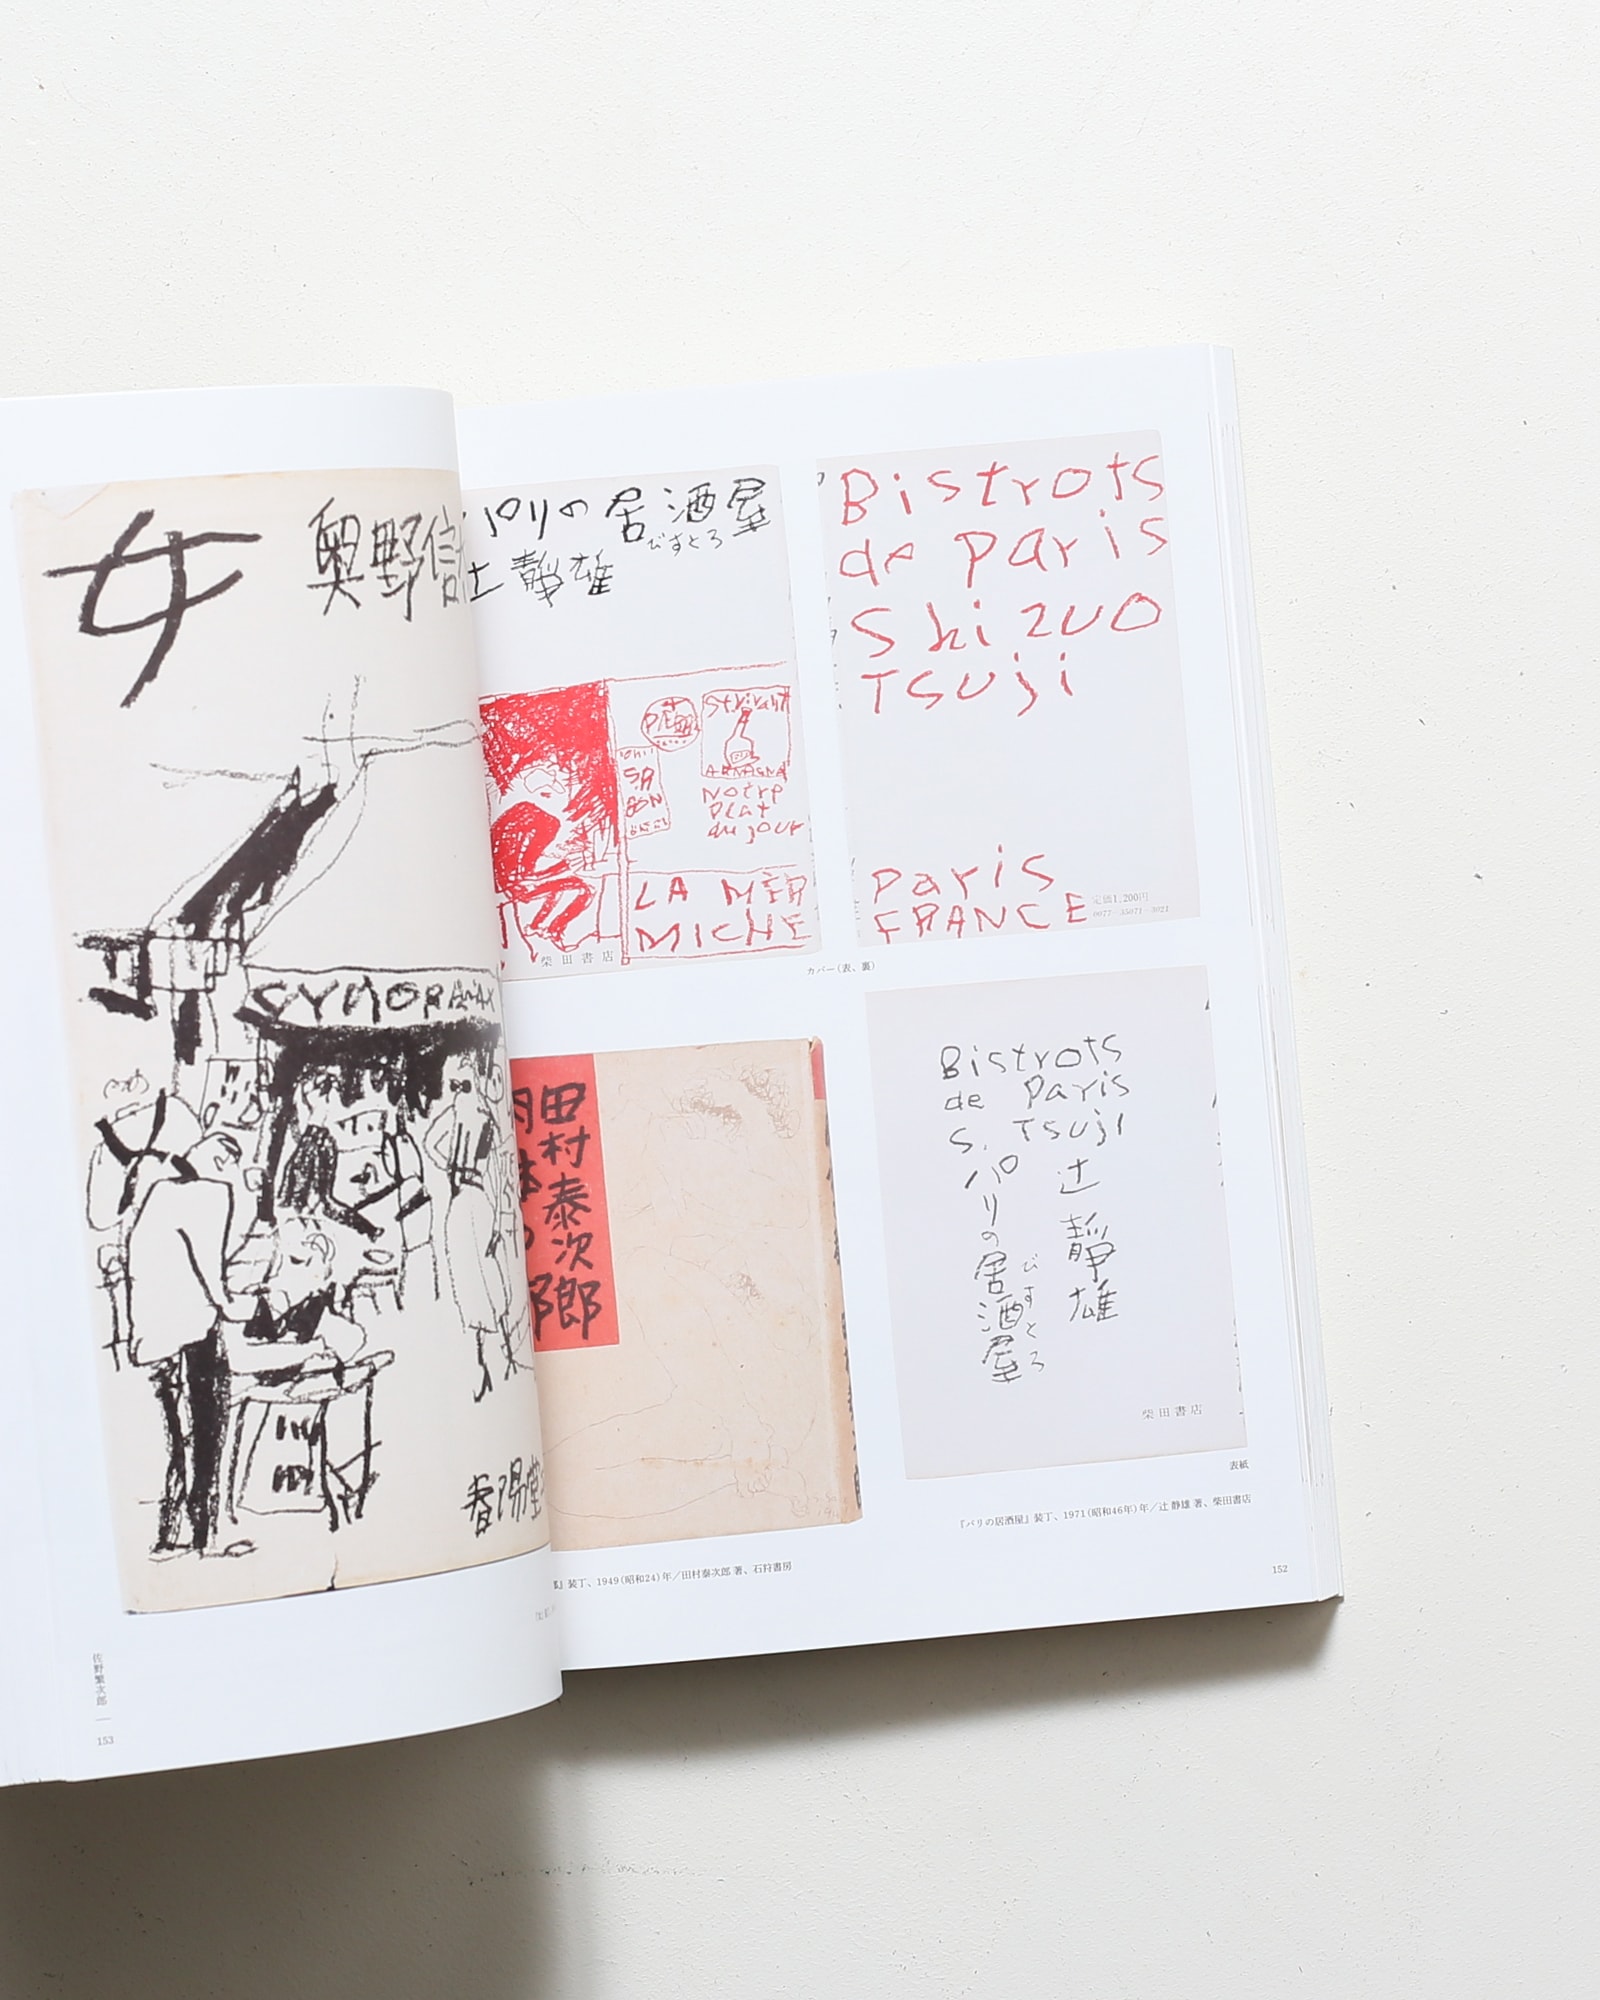 女
奥野信
春陽堂
SYNORAMAX
佐野繁次郎
153
パリの居酒屋
びすとろ
辻静雄
LA MÈR
MICHE
Notre
plat
du jour
柴田書店
Bistrots
de paris
Shizuo
Tsuji
paris
FRANCE
定価1,200円
0077-35071-3021
カバー(表、裏)
田村泰次郎
Bistrots
de Paris
S. Tsuji
辻靜雄
パリの居酒屋
びすとろ
柴田書店
表紙
『パリの居酒屋』装丁、1971(昭和46年)年/辻 静雄 著、柴田書店
』装丁、1949(昭和24)年/田村泰次郎 著、石狩書房
152